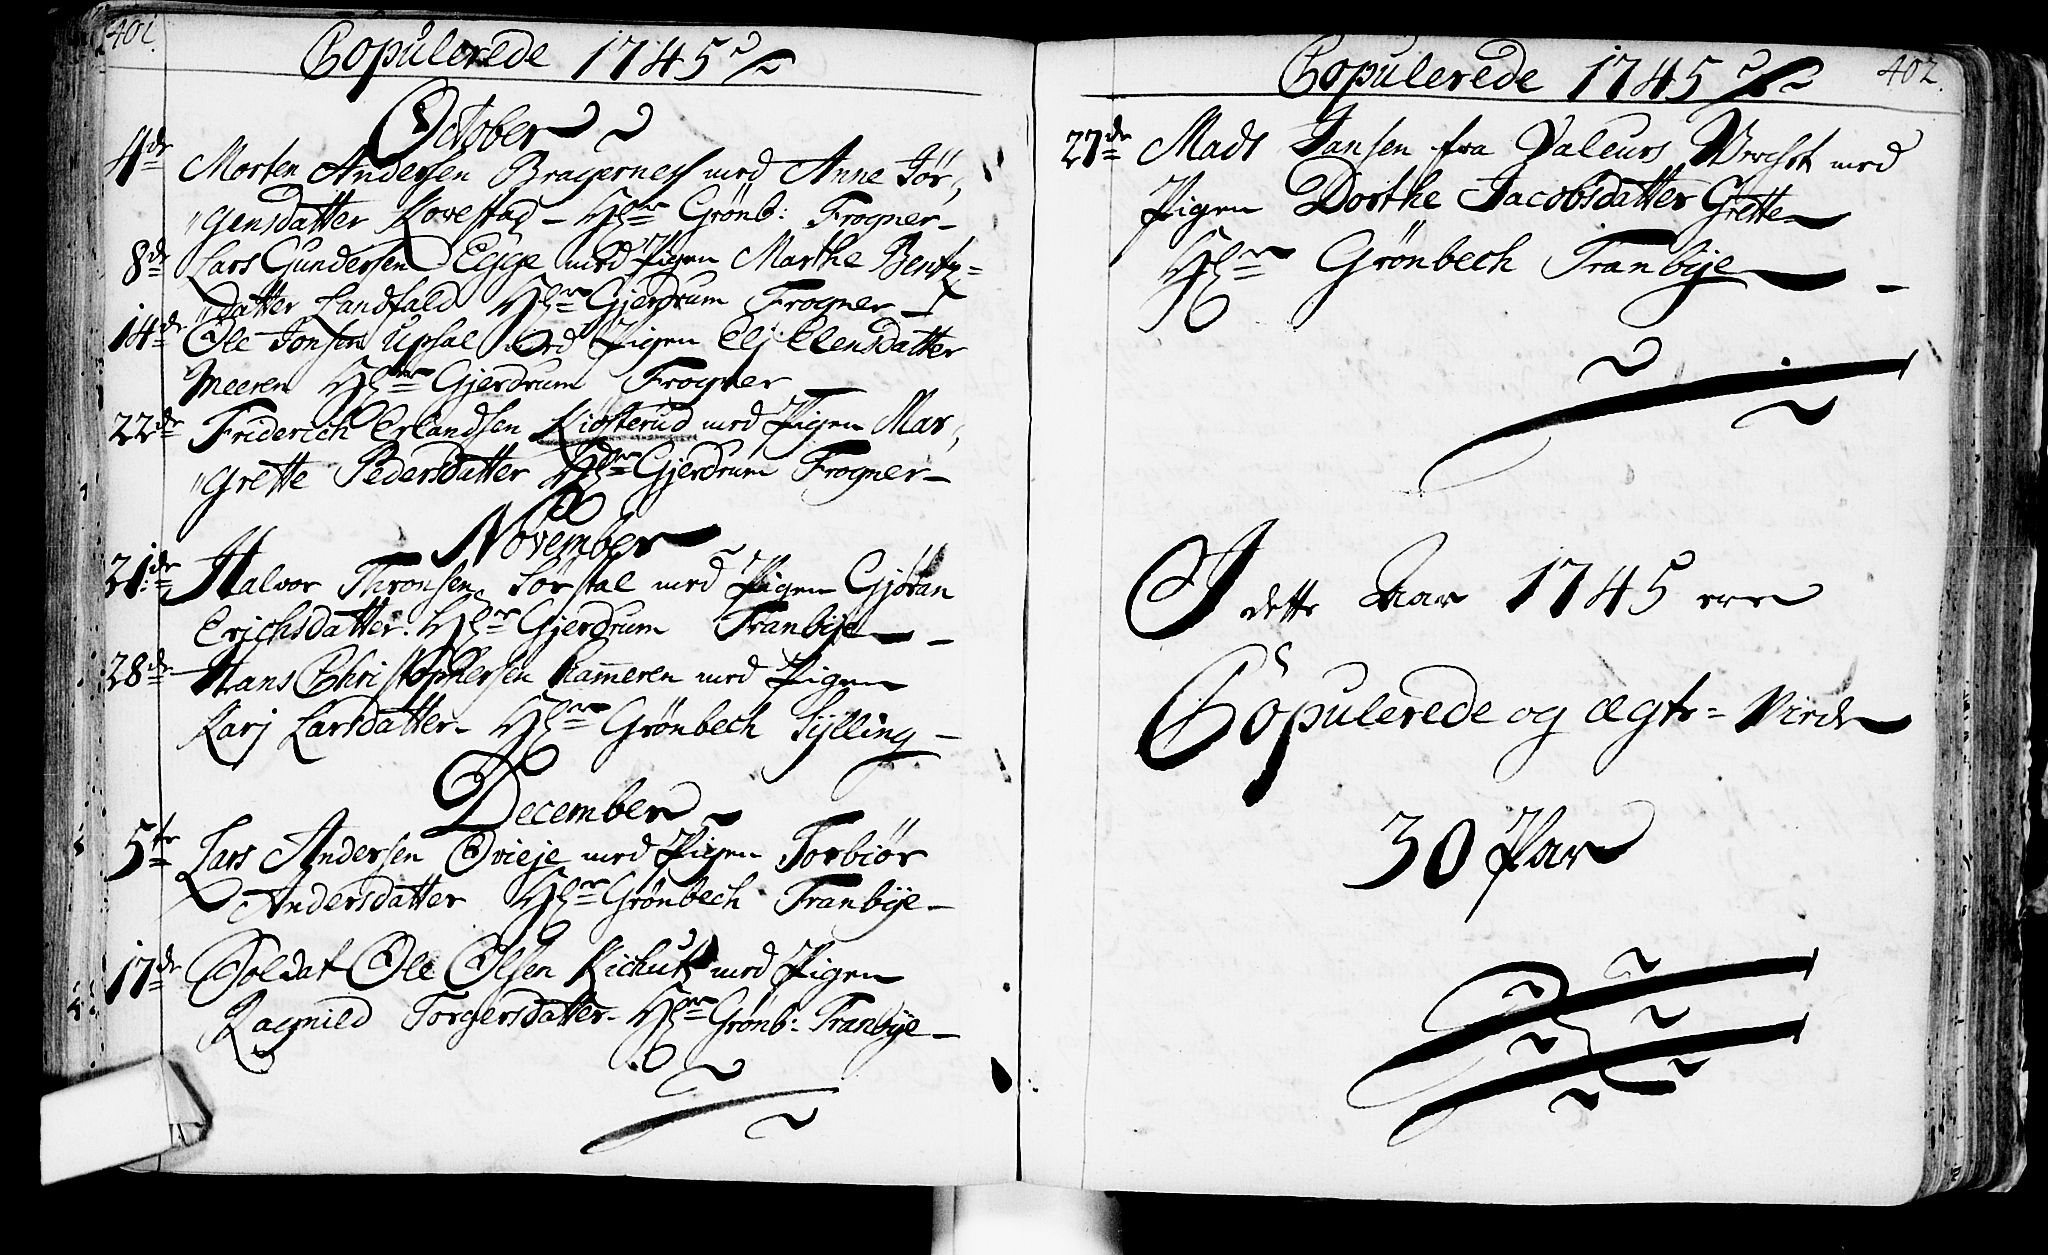 401.
Copulerede 1745
October
4de Morten Andersen Bragernes med Anne Jør,
"gensdatter Kovestad - Hr Grönb: Frogner -
8de Lars Gundersen Egge med Pigen Marthe Bentz=
"datter Landfald Hr Gjerdrum Frogner -
14de Ole Jonsen Upsal med Pigen Elj Elensdatter
Meeren Hr Gjerdrum Frogner -
22de Friderich Erlandsen Kiosterud med Pigen Mar,
"grette Pedersdatter Hr Gjerdrum Frogner -
November
21de Halvor Thronsen Sørstal med Pigen Gjøran
Erichsdatter. Hr Gjerdrum Tranbije -
28de Hans Christophersen Kam̅eren med Pigen
Karj Larsdatter - Hr Grönbech Sylling -
December
5te Lars Andersen Ovieje med Pigen Torbiör
Andersdatter Hr Grönbech Tranbije -
17de Soldat Ole Olsen Kichut med Pigen
Ragnild Torgersdatter - Hr Grönb: Tranbije -
Copulerede 1745
402.
27de Mads Jansen fra Valeurs Verchst med
Pigen Dorthe Jacobsdatter Grette
Hr Grönbech Tranbije -
I dette Aar 1745 ere
Copulerede og ægte= Viede
30 Par